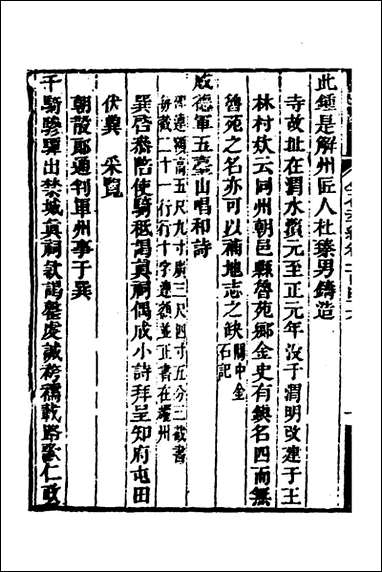 此鍾是解州匠人杜臻男鑄造
寺故址在渭水濱元至正元年沒于渭明改建于王
林村欵云同州朝邑縣魯苑鄉金史有鎮名四而無
魯苑之名亦可以補地志之缺關中金石記
感德軍五臺山唱和詩
碑連額高五尺九寸廣三尺四寸五分三截書
每截二十一行行十字連額並正書在耀州
巽啓恭陪使騎祗謁眞祠偶成小詩拜呈知府屯田
伏冀　采覽
朝散郎通判軍州事于巽
千騎驂驔出禁城眞祠欵謁罄虔誠袴襦載路歌仁政